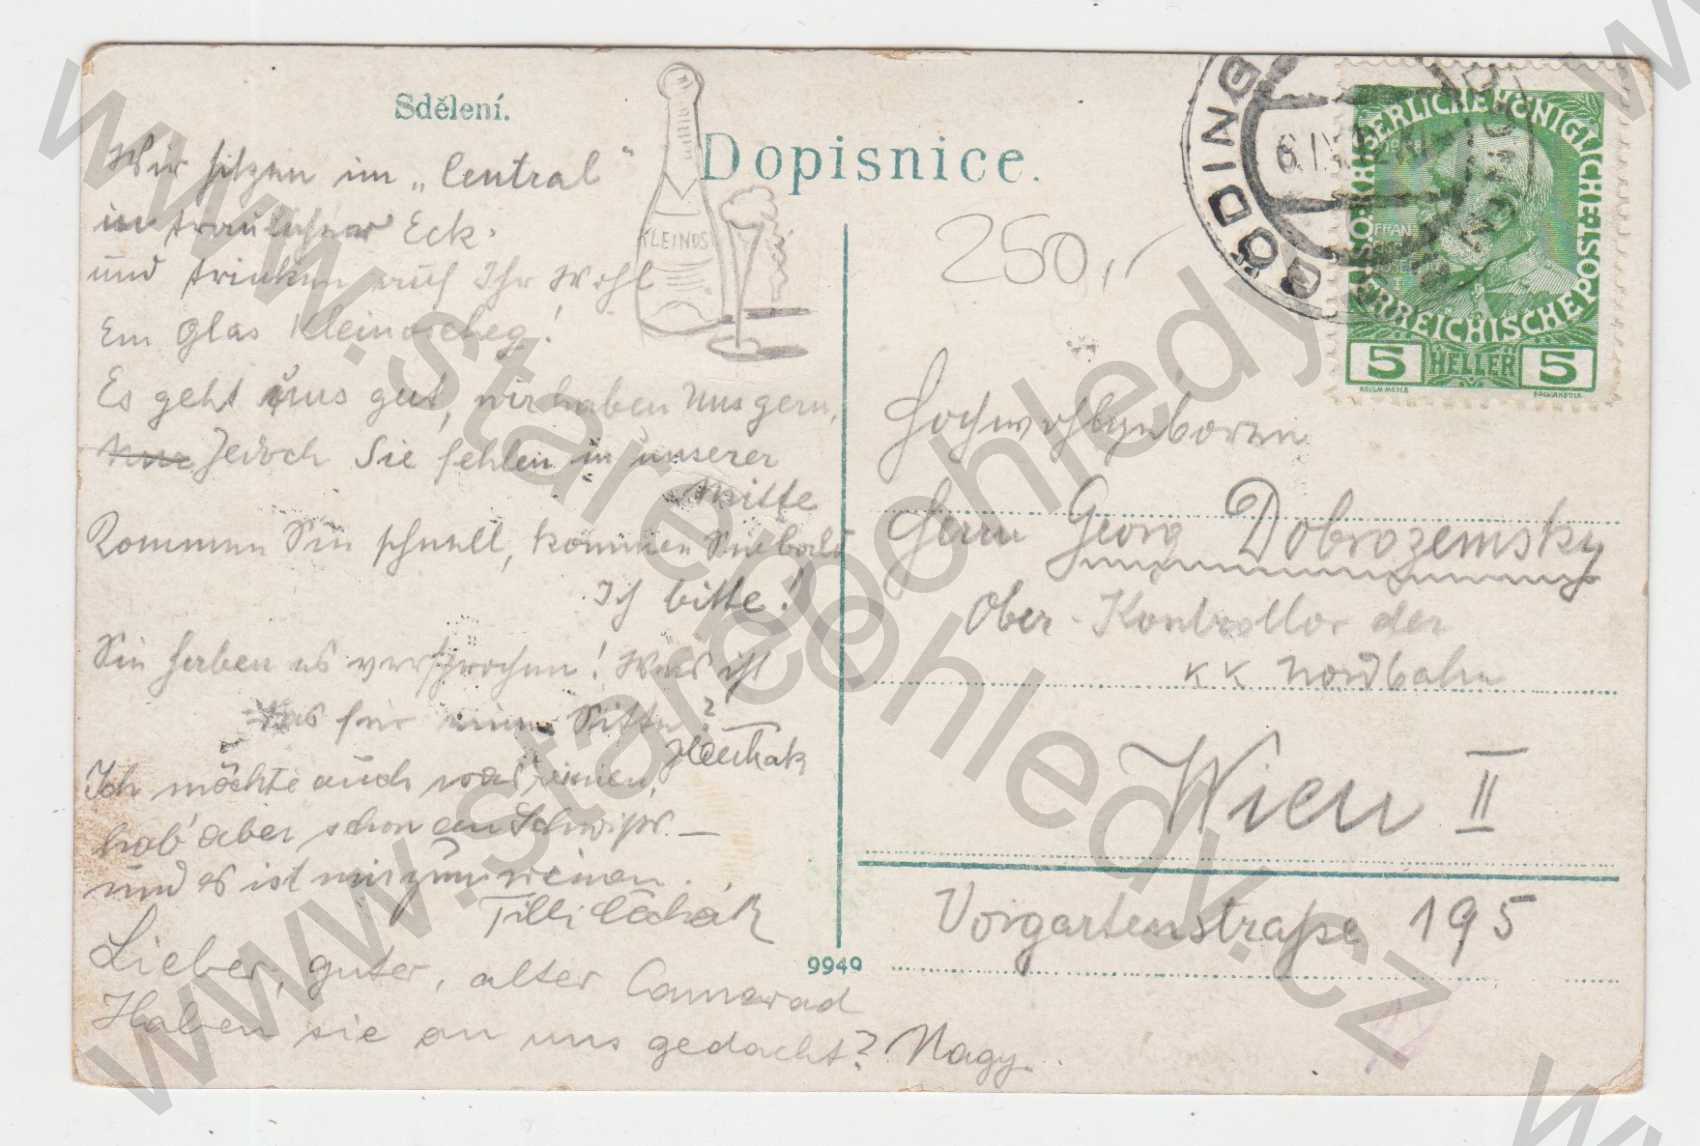 Sdělení.
Dopisnice.
Wir sitzen im „Central“
in traulicher Eck.
und trinken auf Ihr Wohl
Ein Glas Kleinoscheg!
Es geht uns gut, wir haben uns gern,
Jedoch Sie fehlen in unserer
Mitte
Kommen Sie schnell, kommen Sie bald
Ich bitte!
Sie haben es versprochen! Was ist
das für eine Sitte?
Ich möchte auch was reimen,
hab' aber schon an Schwips. —
und es ist mir zum weinen.
Tilli
Lieber, guter, alter Camerad
Haben sie an uns gedacht? Nagy.
KLEINOS
250,-
GÖDING
HODONÍN
KAISERLICHE KÖNIGLICHE
ÖSTERREICHISCHE POST
5 HELLER 5
Hochwohlgeboren
Herrn Georg Dobrozemsky
Ober-Kontrollor der
KK Nordbahn
Wien II
Vorgartenstraße 195
9949
www.starepohledy.cz
www.starepohledy.cz